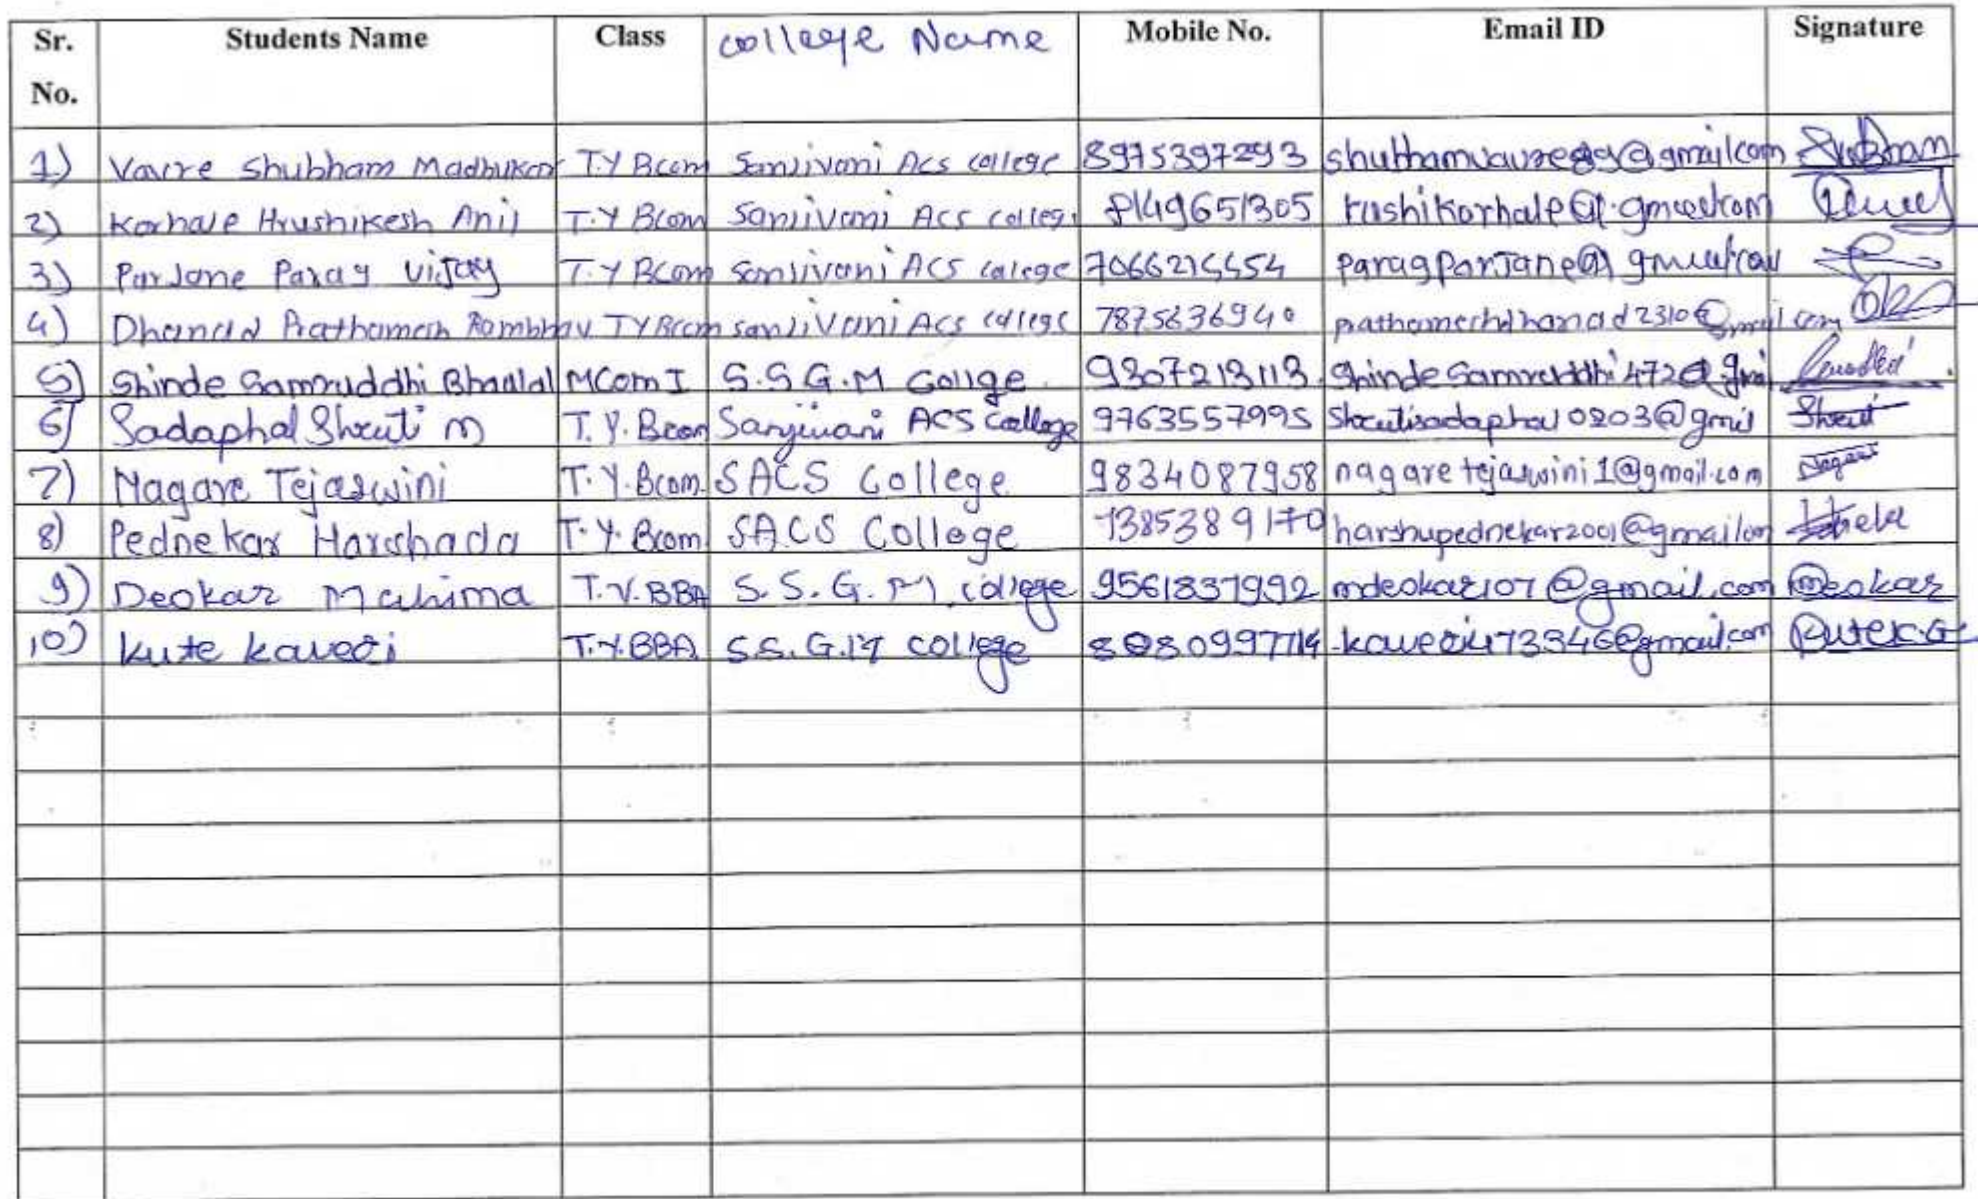 Sr. No. Students Name Class college Name Mobile No. Email ID Signature
1) Vavre Shubham Madhukar T.Y Bcom Sanjivani Acs college 8975397293 Shubham
2) Korhale Hrushikesh Anil T.Y Bcom Sanjivani Acs colleg
3) Parjane Parag Vijay T.Y Bcom Sanjivani ACS college
4) Dhanad Prathamesh Rambhav TYBcom sanjivani Acs college 7875636940
5) Shinde Samruddhi Bhaulal MCom I S.S G.M Collge 9307213113.
6) Sadaphal Shruti m T.Y. Bcom Sanjivani ACS College 9763557995 Shrutisadaphal0203@gmil Shruti
7) Nagare Tejaswini T.Y.Bcom. SACS College 9834087958 nagaretejaswini1@gmail.com Nagare
8) Pednekar Harshada T.Y. Bcom SACS College 7385389170 harshupednekar2001@gmailcom
9) Deokar Mahima T.Y.BBA S.S.G.M college 9561837992 mdeokar107@gmail.com Deokar
10) kute kaveri T.Y.BBA S.S.G.M college kaveri473346@gmail.com